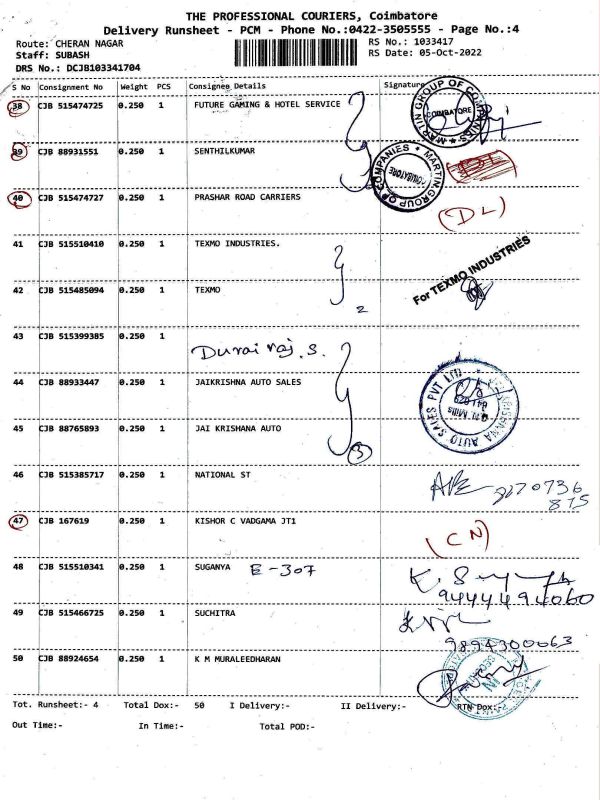 THE PROFESSIONAL COURIERS, Coimbatore
Delivery Runsheet - PCM - Phone No.:0422-3505555 - Page No.:4
Route: CHERAN NAGAR RS No.: 1033417
Staff: SUBASH RS Date: 05-Oct-2022
DRS No.: DCJB103341704
S No Consignment No Weight PCS Consignee Details Signature
38 CJB 515474725 0.250 1 FUTURE GAMING & HOTEL SERVICE
MARTIN GROUP OF COMPANIES COIMBATORE
39 CJB 88931551 0.250 1 SENTHILKUMAR
MARTIN GROUP OF COMPANIES COIMBATORE
40 CJB 515474727 0.250 1 PRASHAR ROAD CARRIERS (DL)
41 CJB 515510410 0.250 1 TEXMO INDUSTRIES.
For TEXMO INDUSTRIES
42 CJB 515485094 0.250 1 TEXMO
2
43 CJB 515399385 0.250 1 Durai raj. S.
44 CJB 88933447 0.250 1 JAIKRISHNA AUTO SALES
AUTO SALES PVT LTD
45 CJB 88765893 0.250 1 JAI KRISHANA AUTO
3
46 CJB 515385717 0.250 1 NATIONAL ST
47 CJB 167619 0.250 1 KISHOR C VADGAMA JT1 (CN)
48 CJB 515510341 0.250 1 SUGANYA E-307
9444494060
49 CJB 515466725 0.250 1 SUCHITRA
9894300063
50 CJB 88924654 0.250 1 K M MURALEEDHARAN
Tot. Runsheet:- 4 Total Dox:- 50 I Delivery:- II Delivery:- RTN Dox:-
Out Time:- In Time:- Total POD:-